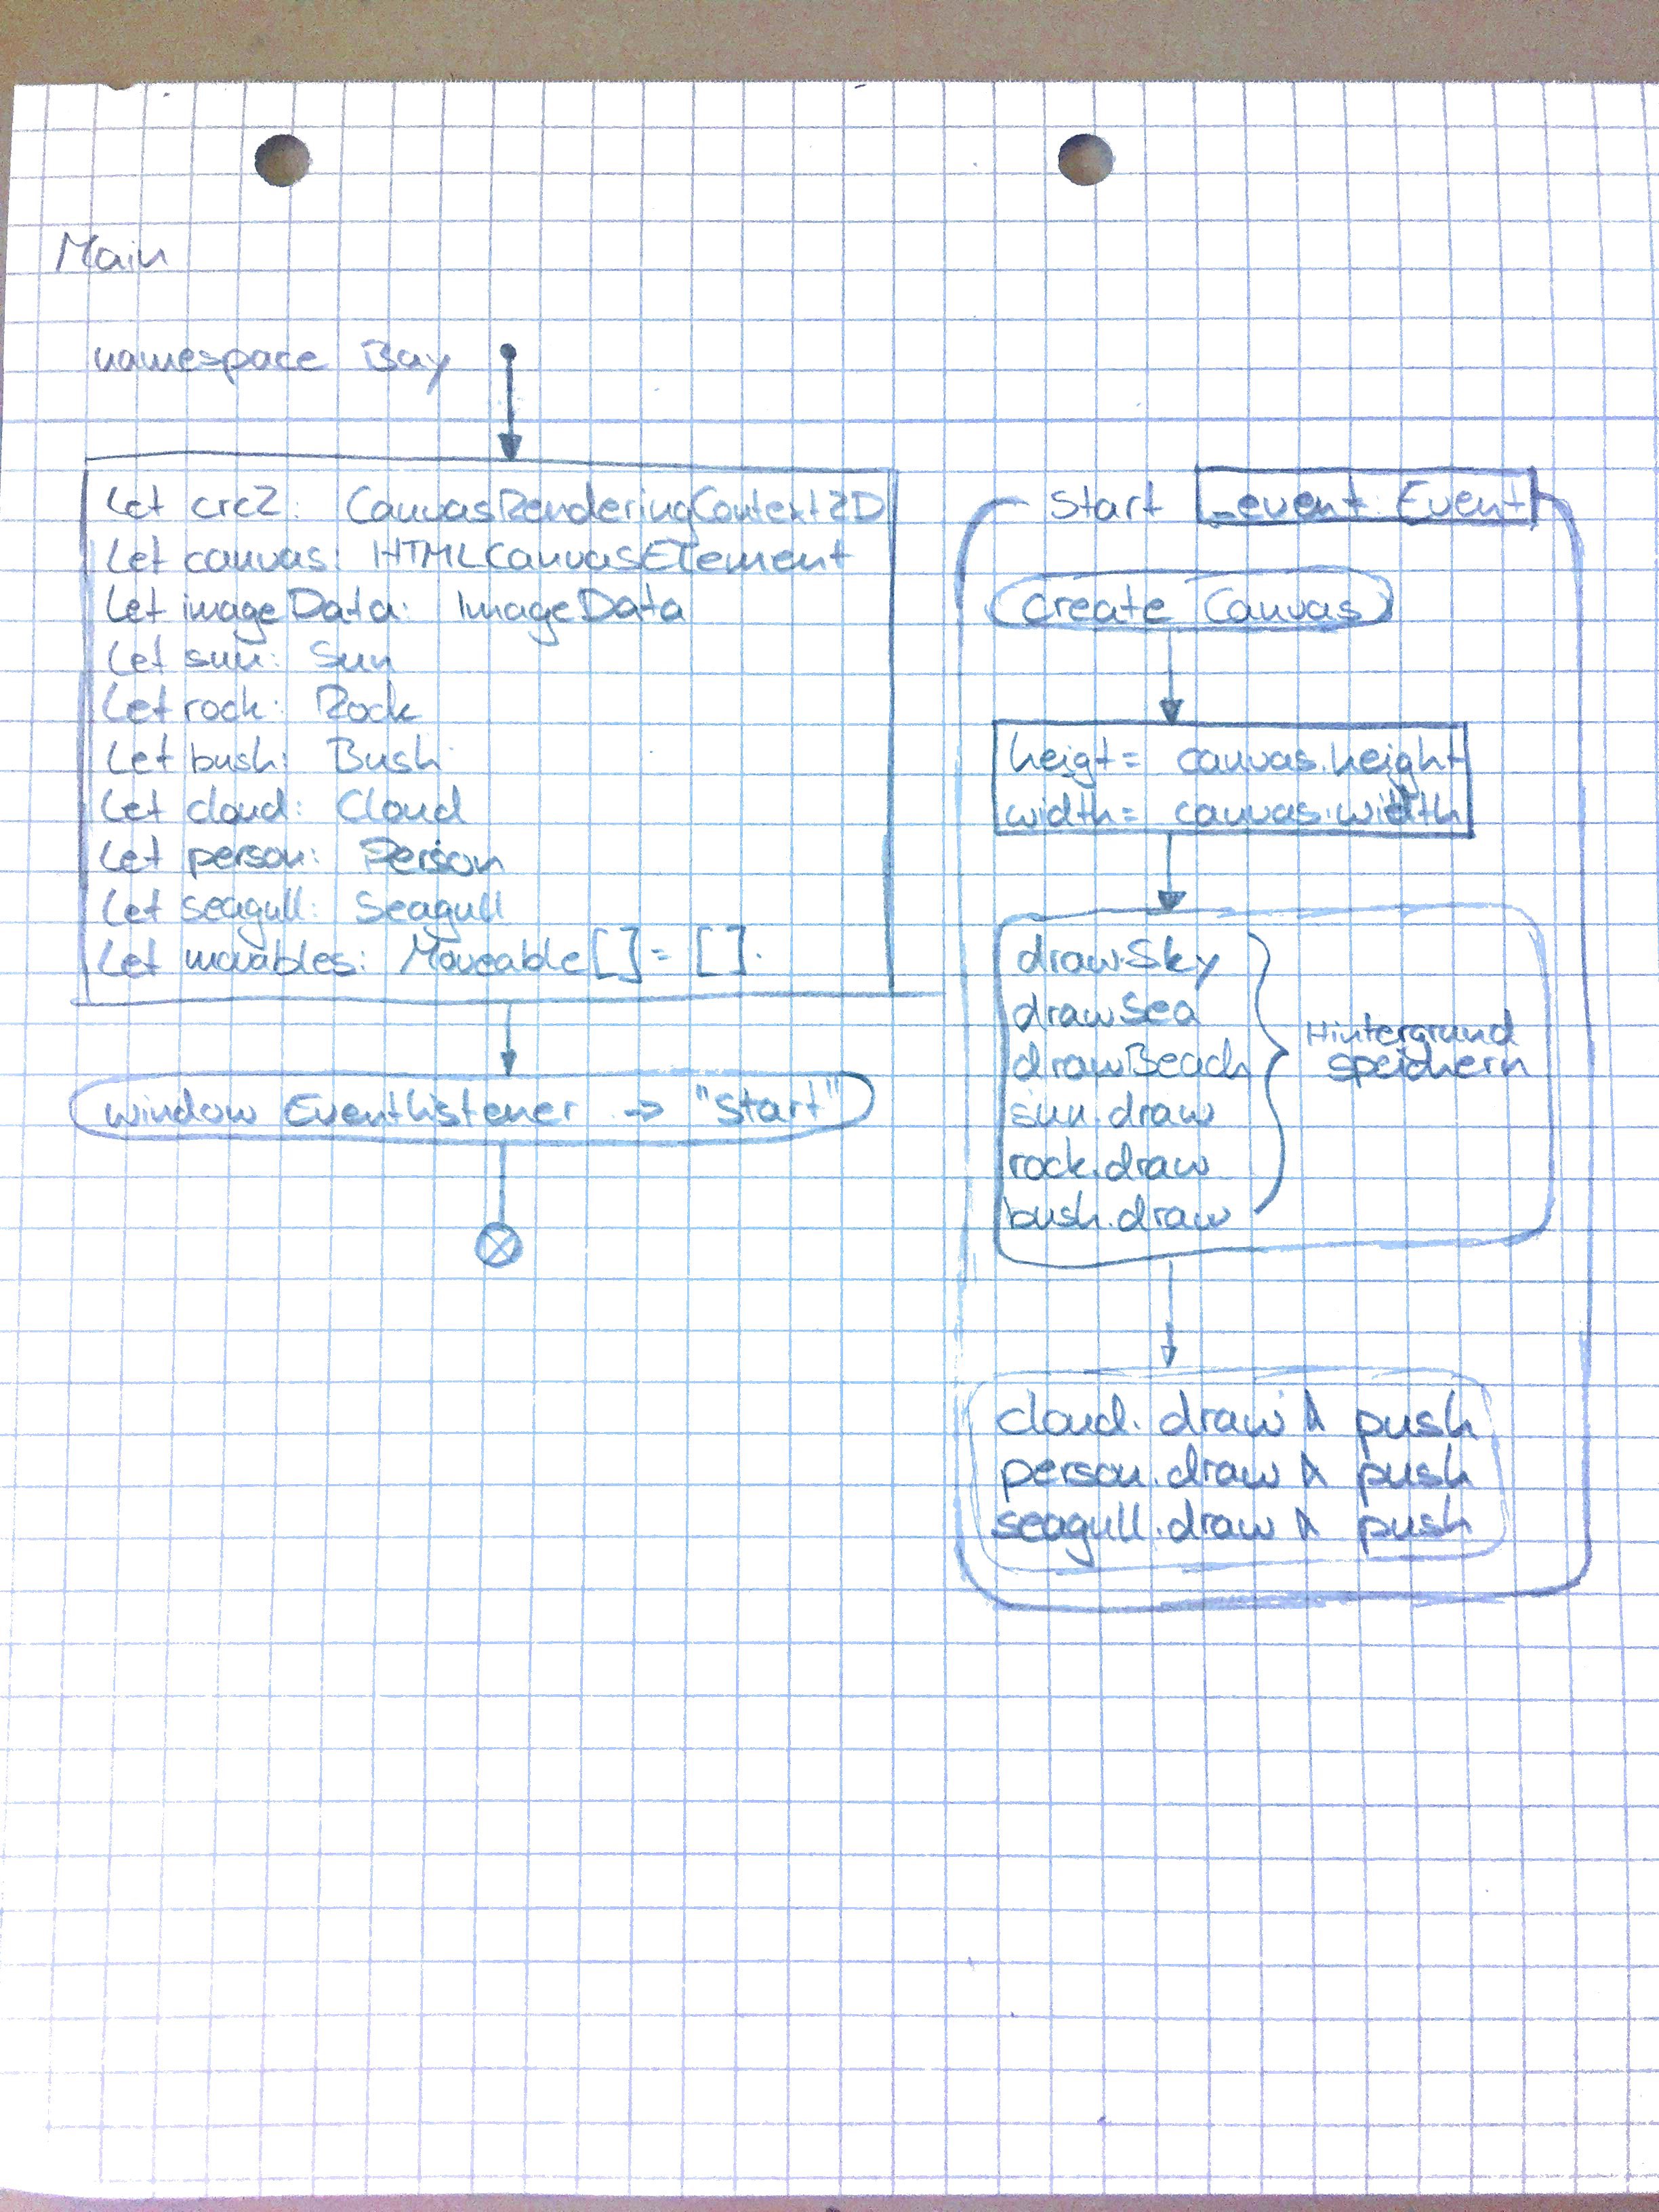 Main
namespace Bay
Let crc2: CanvasRenderingContext2D
Let canvas: HTMLCanvasElement
Let imageData: ImageData
Let sun: Sun
Let rock: Rock
Let bush: Bush
Let cloud: Cloud
Let person: Person
Let seagull: Seagull
Let movables: Moveable[] = [].
window EventListener -> "Start"
Start _event: Event
create Canvas
heigt = canvas.height
width = canvas.width
drawSky
drawSea
drawBeach
sun.draw
rock.draw
bush.draw
Hintergrund
speichern
cloud.draw & push
person.draw & push
seagull.draw & push